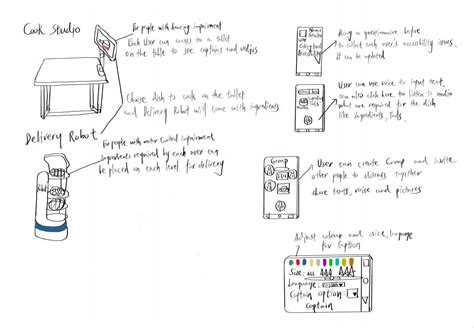 Cook Studio
For people with hearing impairment
Each User can access to a tablet
on the table to see captains and recipes
Choose dish to cook on the tablet
and Delivery Robot will come with ingredients
Delivery Robot
For people with motor control impairment
Ingredients required by each user can
be placed on each level for delivery
Doing a questionnaire before
to collect each user's accessibility issues.
It can be updated
User can use voice to input text,
can also click here to listen to audio
what are required for the dish
like Ingredients, Tools.
Group
User can create Group and invite
other people to discuss together
share texts, voice and pictures
Adjust colour and size, language
for Caption
Size: AAA AAA AAA
Language:
Captain option:
Captain